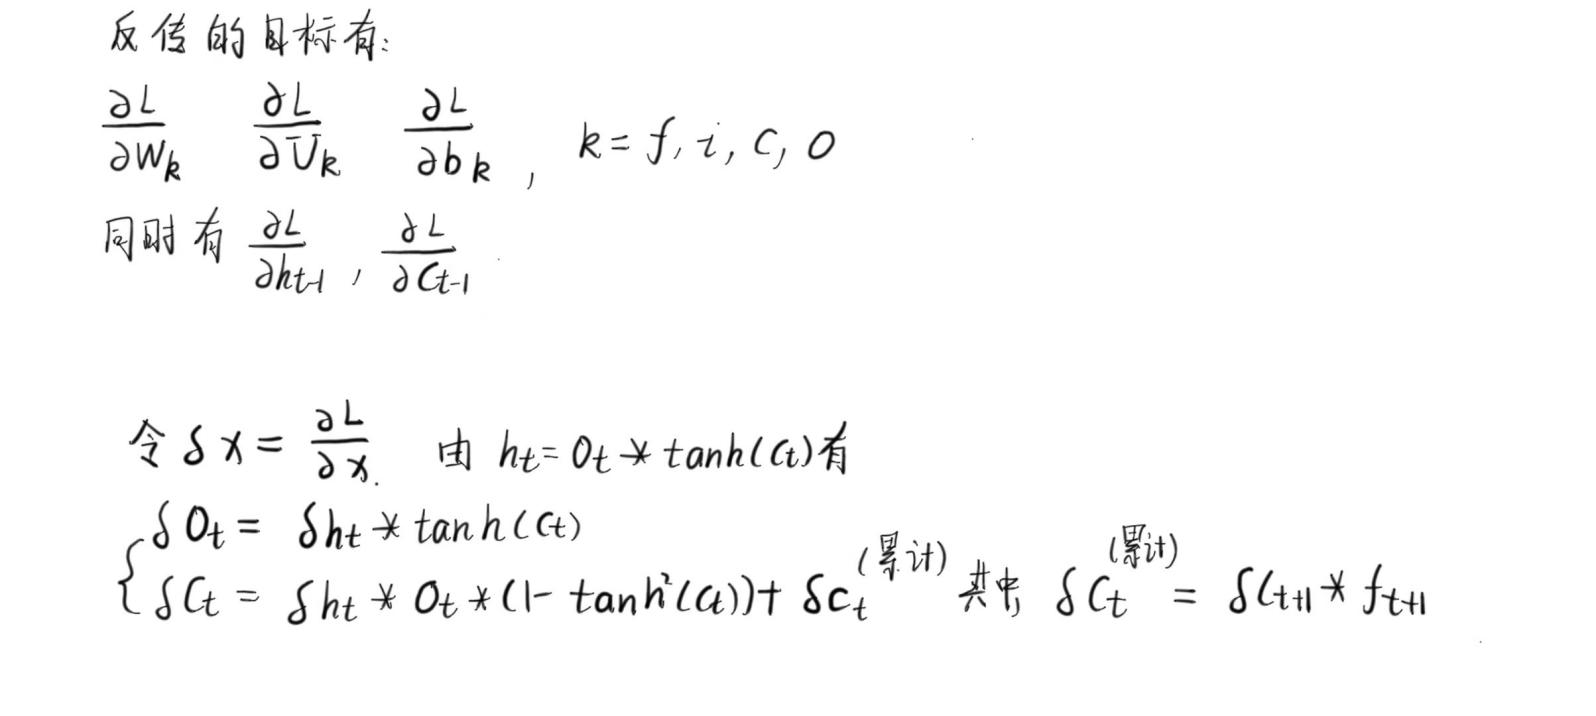 反传的目标有:
∂L/∂W_k  ∂L/∂U_k  ∂L/∂b_k , k = f, i, C, O
同时有 ∂L/∂h_{t-1} , ∂L/∂C_{t-1}
令 δx = ∂L/∂x. 由 h_t = O_t * tanh(C_t) 有
δO_t = δh_t * tanh(C_t)
δC_t = δh_t * O_t * (1 - tanh²(C_t)) + δC_t^(累计) 其中, δC_t^(累计) = δC_{t+1} * f_{t+1}